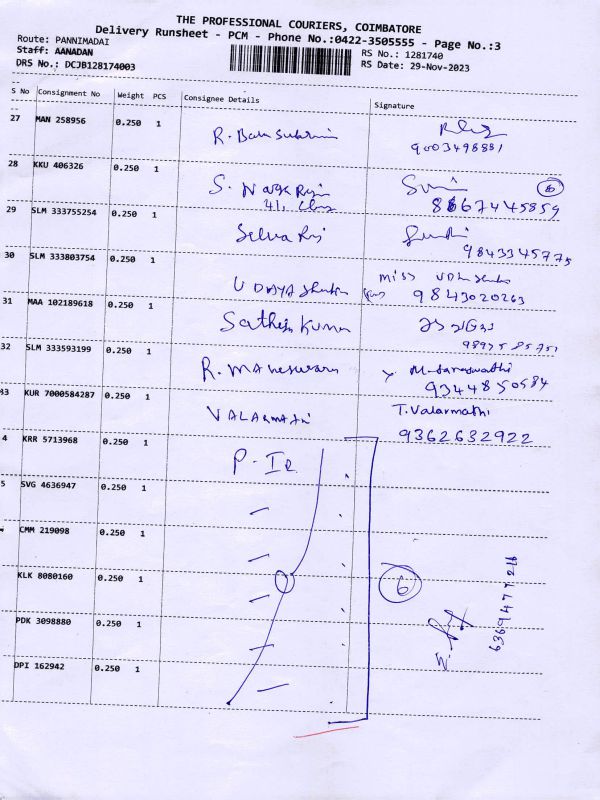 THE PROFESSIONAL COURIERS, COIMBATORE
Delivery Runsheet - PCM - Phone No.:0422-3505555 - Page No.:3
Route: PANNIMADAI
Staff: AANADAN
DRS No.: DCJB128174003
RS No.: 1281740
RS Date: 29-Nov-2023
S No Consignment No Weight PCS Consignee Details Signature
27 MAN 258956 0.250 1
9003498881
28 KKU 406326 0.250 1 S.
41,
8667445859
29 SLM 333755254 0.250 1 Selva Raj
9843345775
30 SLM 333803754 0.250 1 UDAYA
Miss
9843020263
31 MAA 102189618 0.250 1 Sathish Kumar
32 SLM 333593199 0.250 1 R. Maheswaran M. Saraswathi
9344850584
33 KUR 7000584287 0.250 1 VALARMATHI T. Valarmathi
9362632922
4 KRR 5713968 0.250 1 P.
5 SVG 4636947 0.250 1
CMM 219098 0.250 1
KLK 8080160 0.250 1 6
PDK 3098880 0.250 1
DPI 162942 0.250 1